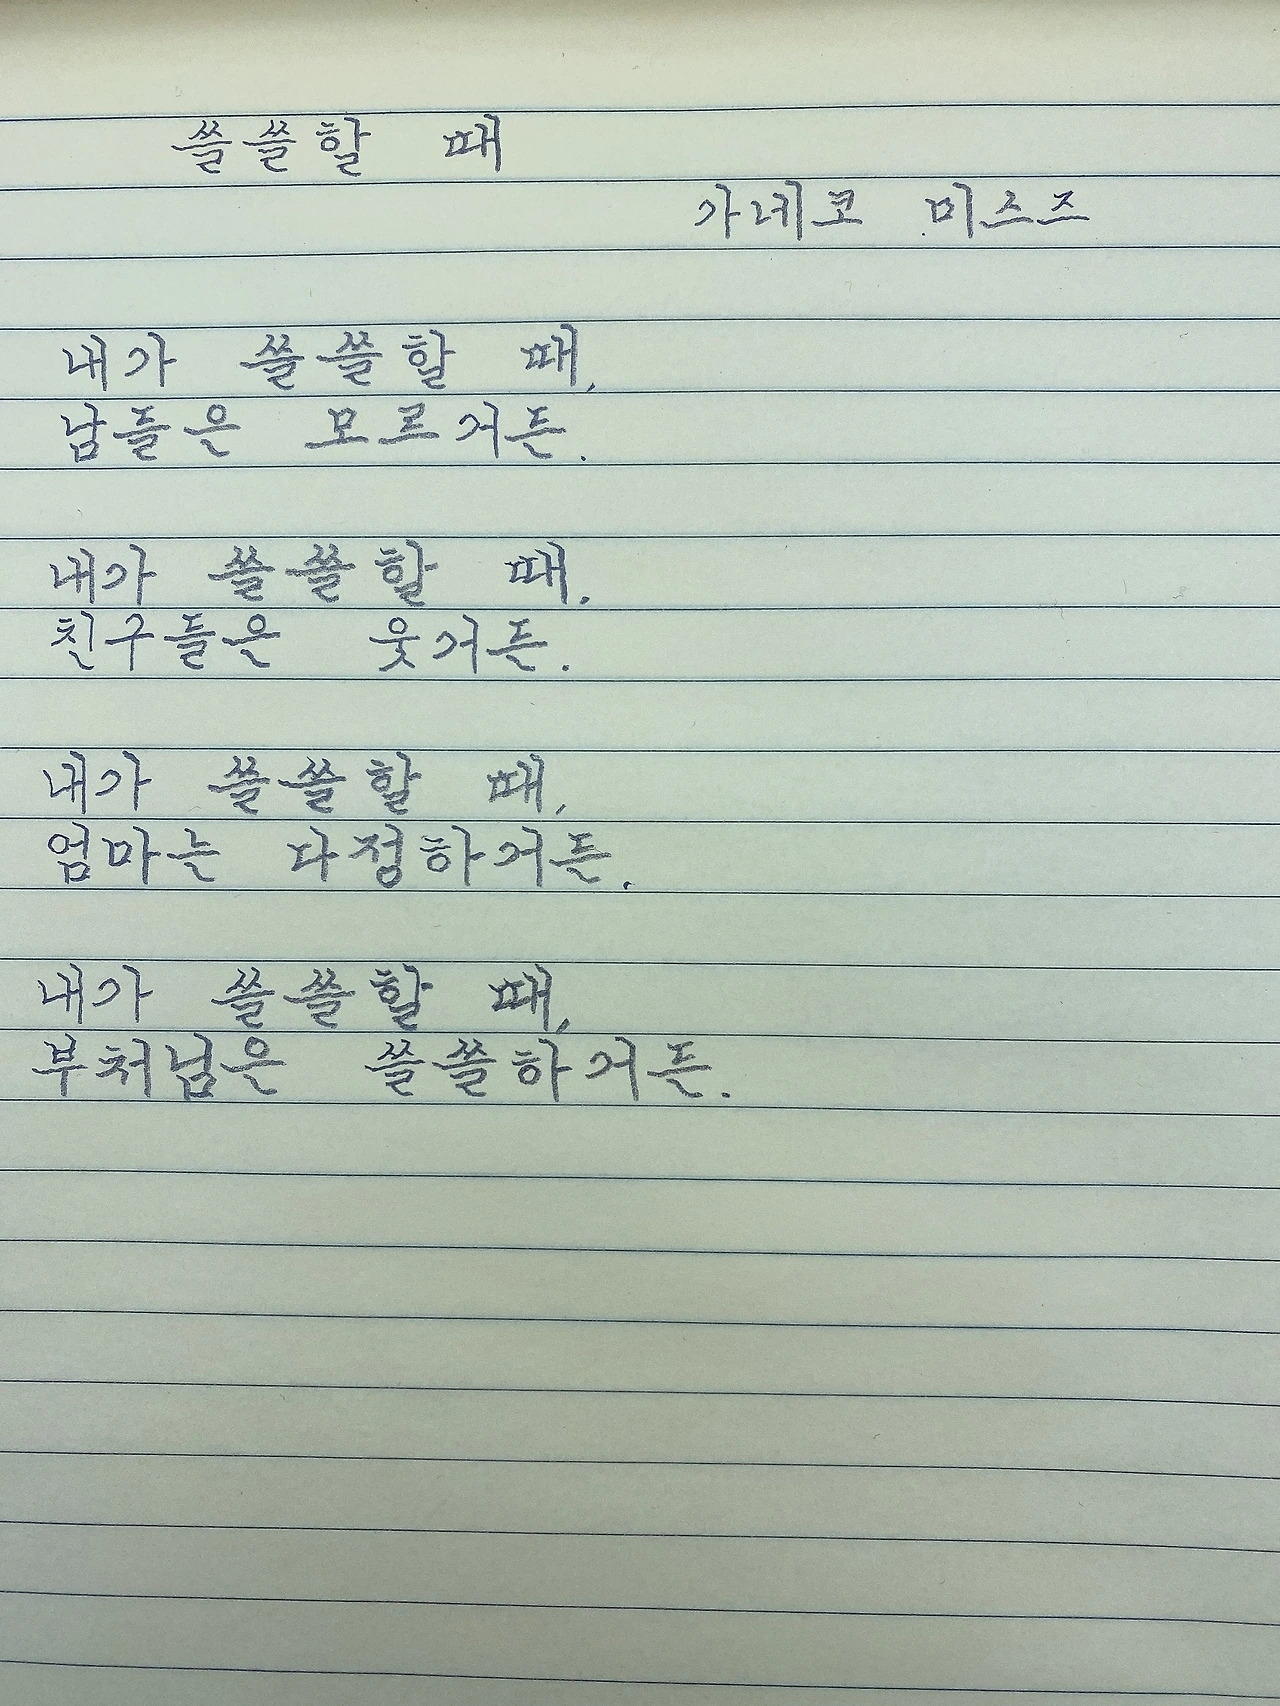 쓸쓸할 때
가네코 미스즈
내가 쓸쓸할 때,
남들은 모르거든.
내가 쓸쓸할 때.
친구들은 웃거든.
내가 쓸쓸할 때,
엄마는 다정하거든.
내가 쓸쓸할 때,
부처님은 쓸쓸하거든.